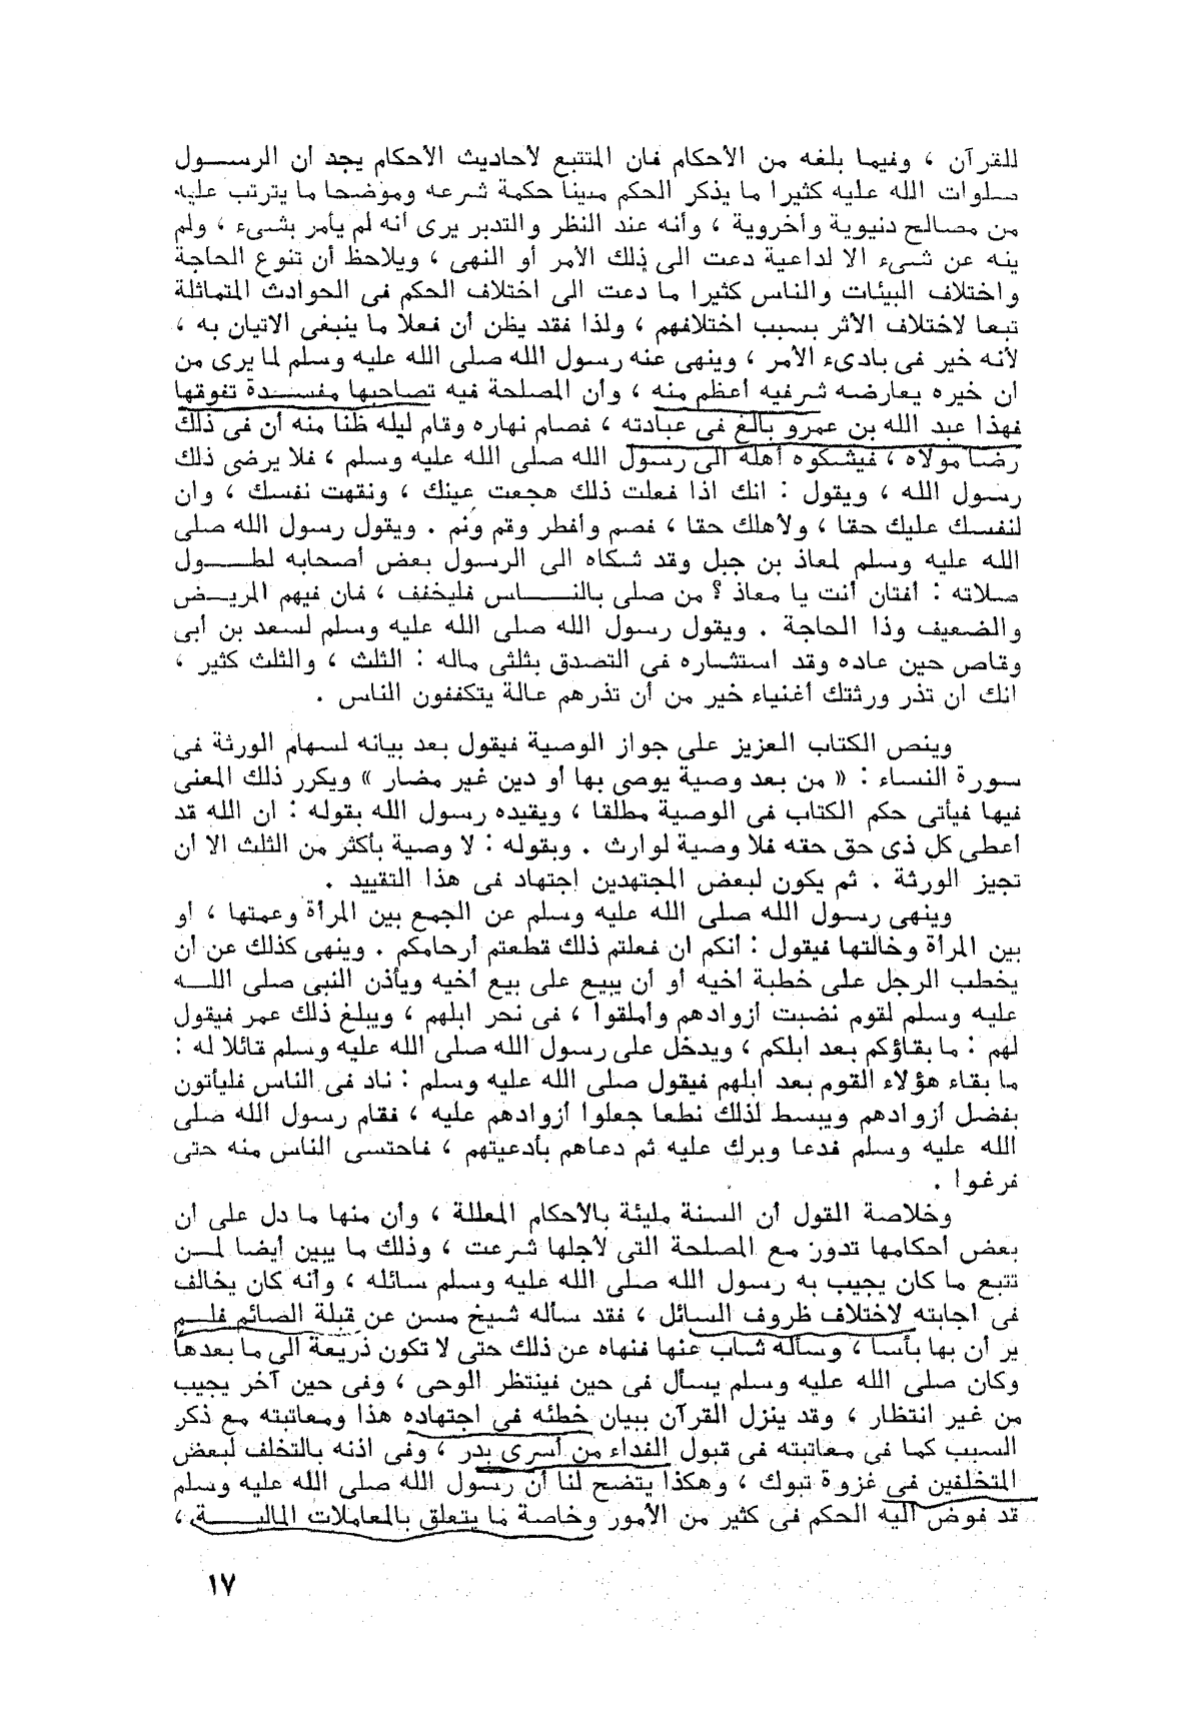 للقرآن ، وفيما بلغه من الأحكام فان المتتبع لأحاديث الأحكام يجد أن الرسـول
صلوات الله عليه كثيرا ما يذكر الحكم مبينا حكمة شرعه وموضحا ما يترتب عليه
من مصالح دنيوية وأخروية ، وأنه عند النظر والتدبر يرى أنه لم يأمر بشىء ، ولم
ينه عن شىء الا لداعية دعت الى ذلك الأمر أو النهى ، ويلاحظ أن تنوع الحاجة
واختلاف البيئات والناس كثيرا ما دعت الى اختلاف الحكم فى الحوادث المتماثلة
تبعا لاختلاف الأثر بسبب اختلافهم ، ولذا فقد يظن أن فعلا ما ينبغى الاتيان به ،
لأنه خير فى بادىء الأمر ، وينهى عنه رسول الله صلى الله عليه وسلم لما يرى من
أن خيره يعارضه شرفيه أعظم منه ، وأن المصلحة فيه تصاحبها مفسـدة تفوقها
فهذا عبد الله بن عمرو بالغ فى عبادته ، فصام نهاره وقام ليله ظنا منه أن فى ذلك
رضا مولاه ، فيشكوه أهله الى رسول الله صلى الله عليه وسلم ، فلا يرضى ذلك
رسول الله ، ويقول : انك اذا فعلت ذلك هجعت عينك ، ونقهت نفسك ، وان
لنفسك عليك حقا ، ولأهلك حقا ، فصم وأفطر وقم ونم . ويقول رسول الله صلى
الله عليه وسلم لمعاذ بن جبل وقد شكاه الى الرسول بعض أصحابه لطـول
صلاته : أفتان أنت يا معاذ ؟ من صلى بالنـاس فليخفف ، فان فيهم المريـض
والضعيف وذا الحاجة . ويقول رسول الله صلى الله عليه وسلم لسعد بن أبى
وقاص حين عاده وقد استشاره فى التصدق بثلثى ماله : الثلث ، والثلث كثير ،
انك ان تذر ورثتك أغنياء خير من أن تذرهم عالة يتكففون الناس .
وينص الكتاب العزيز على جواز الوصية فيقول بعد بيانه لسهام الورثة فى
سورة النساء : « من بعد وصية يوصى بها أو دين غير مضار » ويكرر ذلك المعنى
فيها فيأتى حكم الكتاب فى الوصية مطلقا ، ويقيده رسول الله بقوله : ان الله قد
أعطى كل ذى حق حقه فلا وصية لوارث . وبقوله : لا وصية بأكثر من الثلث الا أن
تجيز الورثة . ثم يكون لبعض المجتهدين اجتهاد فى هذا التقييد .
وينهى رسول الله صلى الله عليه وسلم عن الجمع بين المرأة وعمتها ، أو
بين المرأة وخالتها فيقول : أنكم ان فعلتم ذلك قطعتم أرحامكم . وينهى كذلك عن أن
يخطب الرجل على خطبة أخيه أو أن يبيع على بيع أخيه ويأذن النبى صلى اللـه
عليه وسلم لقوم نضبت أزوادهم وأملقوا ، فى نحر ابلهم ، ويبلغ ذلك عمر فيقول
لهم : ما بقاؤكم بعد ابلكم ، ويدخل على رسول الله صلى الله عليه وسلم قائلا له :
ما بقاء هؤلاء القوم بعد ابلهم فيقول صلى الله عليه وسلم : ناد فى الناس فليأتون
بفضل أزوادهم ويبسط لذلك نطعا جعلوا أزوادهم عليه ، فقام رسول الله صلى
الله عليه وسلم فدعا وبرك عليه ثم دعاهم بأدعيتهم ، فاحتسى الناس منه حتى
فرغوا .
وخلاصة القول أن السنة مليئة بالأحكام المعللة ، وأن منها ما دل على أن
بعض أحكامها تدور مع المصلحة التى لأجلها شرعت ، وذلك ما يبين أيضا لمـن
تتبع ما كان يجيب به رسول الله صلى الله عليه وسلم سائله ، وأنه كان يخالف
فى اجابته لاختلاف ظروف السائل ، فقد سأله شيخ مسن عن قبلة الصائم فلـم
ير أن بها بأسا ، وسأله شاب عنها فنهاه عن ذلك حتى لا تكون ذريعة الى ما بعدها
وكان صلى الله عليه وسلم يسأل فى حين فينتظر الوحى ، وفى حين آخر يجيب
من غير انتظار ، وقد ينزل القرآن ببيان خطئه فى اجتهاده هذا ومعاتبته مع ذكر
السبب كما فى معاتبته فى قبول الفداء من أسرى بدر ، وفى اذنه بالتخلف لبعض
المتخلفين فى غزوة تبوك ، وهكذا يتضح لنا أن رسول الله صلى الله عليه وسلم
قد فوض اليه الحكم فى كثير من الأمور وخاصة ما يتعلق بالمعاملات الماليـة ،
١٧